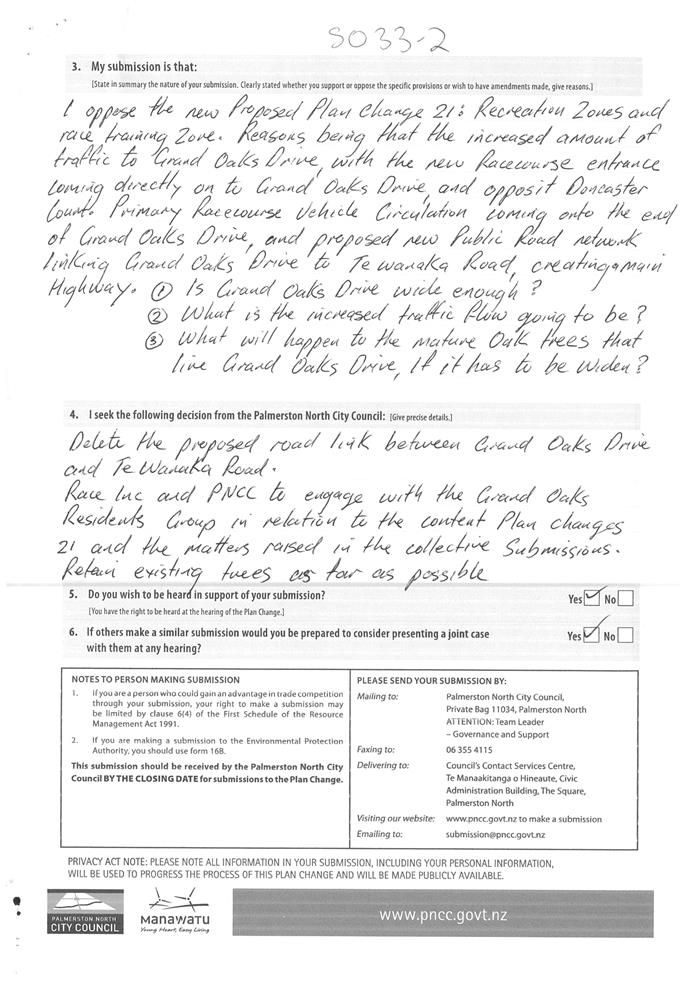 SO33-2
3. My submission is that:
[State in summary the nature of your submission. Clearly stated whether you support or oppose the specific provisions or wish to have amendments made, give reasons.]
I oppose the new Proposed Plan Change 21: Recreation Zones and
race training Zone. Reasons being that the increased amount of
traffic to Grand Oaks Drive, with the new Racecourse entrance
coming directly on to Grand Oaks Drive, and opposit Doncaster
Court. Primary Racecourse Vehicle Circulation coming onto the end
of Grand Oaks Drive, and proposed new Public Road network
linking Grand Oaks Drive to Te wanaka Road, creating a main
Highway. ① Is Grand Oaks Drive wide enough?
② What is the increased traffic flow going to be?
③ What will happen to the mature Oak trees that
line Grand Oaks Drive, If it has to be widen?
4. I seek the following decision from the Palmerston North City Council: [Give precise details.]
Delete the proposed road link between Grand Oaks Drive
and Te Wanaka Road.
Race Inc and PNCC to engage with the Grand Oaks
Residents Group in relation to the content Plan changes
21 and the matters raised in the collective Submissions.
Retain existing trees as far as possible
5. Do you wish to be heard in support of your submission? Yes ✓ No
[You have the right to be heard at the hearing of the Plan Change.]
6. If others make a similar submission would you be prepared to consider presenting a joint case Yes ✓ No
with them at any hearing?
NOTES TO PERSON MAKING SUBMISSION
1. If you are a person who could gain an advantage in trade competition
through your submission, your right to make a submission may
be limited by clause 6(4) of the First Schedule of the Resource
Management Act 1991.
2. If you are making a submission to the Environmental Protection
Authority, you should use form 16B.
This submission should be received by the Palmerston North City
Council BY THE CLOSING DATE for submissions to the Plan Change.
PLEASE SEND YOUR SUBMISSION BY:
Mailing to: Palmerston North City Council,
Private Bag 11034, Palmerston North
ATTENTION: Team Leader
– Governance and Support
Faxing to: 06 355 4115
Delivering to: Council's Contact Services Centre,
Te Manaakitanga o Hineaute, Civic
Administration Building, The Square,
Palmerston North
Visiting our website: www.pncc.govt.nz to make a submission
Emailing to: submission@pncc.govt.nz
PRIVACY ACT NOTE: PLEASE NOTE ALL INFORMATION IN YOUR SUBMISSION, INCLUDING YOUR PERSONAL INFORMATION,
WILL BE USED TO PROGRESS THE PROCESS OF THIS PLAN CHANGE AND WILL BE MADE PUBLICLY AVAILABLE.
PALMERSTON NORTH
CITY COUNCIL
MANAWATU
Young Heart, Easy Living
www.pncc.govt.nz